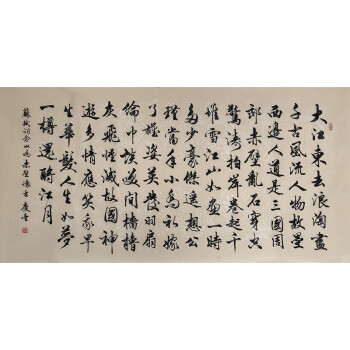 大江東去浪淘盡
千古風流人物故壘
西邊人道是三國周
郎赤壁亂石穿空
驚濤拍岸卷起千
堆雪江山如畫一時
多少豪傑遙想公
瑾當年小喬初嫁
了雄姿英發羽扇
綸巾談笑間檣櫓
灰飛煙滅故國神
遊多情應笑我早
生華髮人生如夢
一樽還酹江月
蘇軾詞念奴嬌赤壁懷古